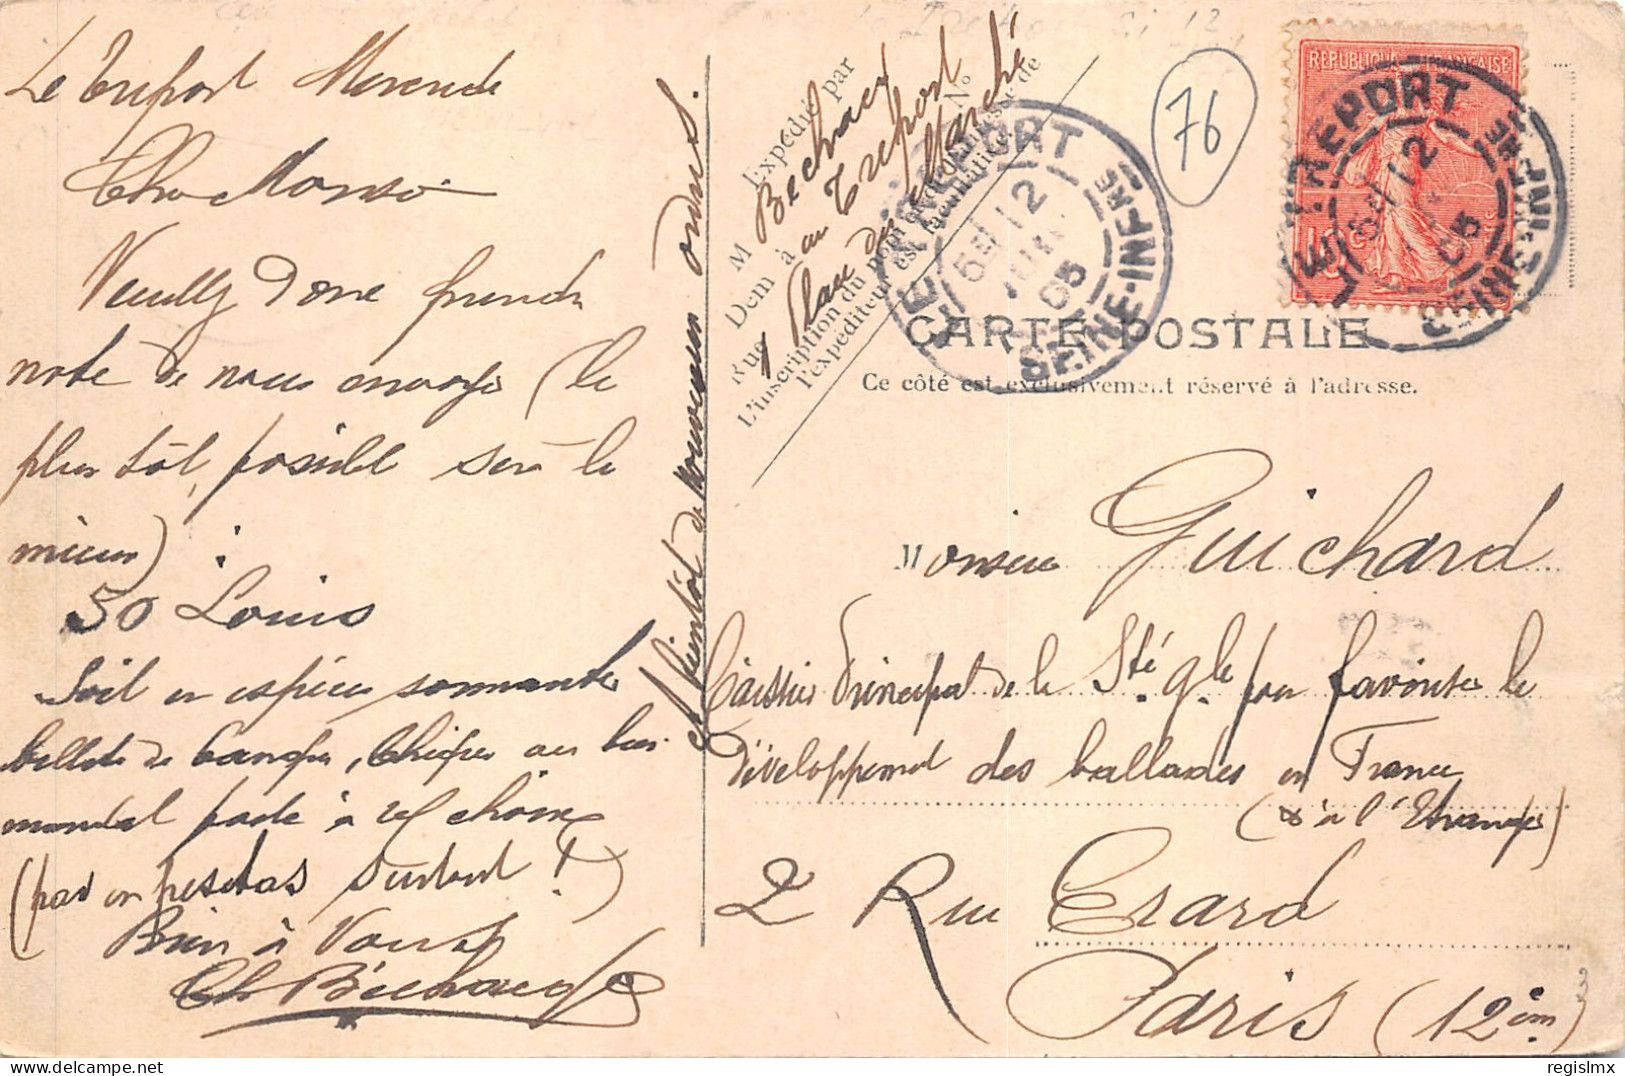 Le Treport Mercredi
Cher Monsieur
Veuillez donc prendre
note de nous envoyer (le
plus tôt possible sera le
mieux) :
50 Louis
Soit en espèces sonnantes
billets de banque, chèques ou bien
mandat poste à vot choix
(pas en pesetas surtout !)
Bien à Vous
Ch Béchaux
A bientôt de nouveaux ordres.
Expédié par
M Bechaux
Dem à au Treport
Rue Place du Marché Nº
L'inscription du nom et de l'adresse de
l'expéditeur est facultative.
76
REPUBLIQUE FRANÇAISE
10c
LE TREPORT
5E 12
05
SEINE-INFRE
LE TREPORT
5E 12
05
SEINE-INFRE
CARTE POSTALE
Ce côté est exclusivement réservé à l'adresse.
Monsieur Guichard
Caissier Principal de la Sté gle pour favoriser le
Développement des ballades en France
(& à l'Etranger)
2 Rue Erard
Paris (12ème)
regislmx
delcampe.net